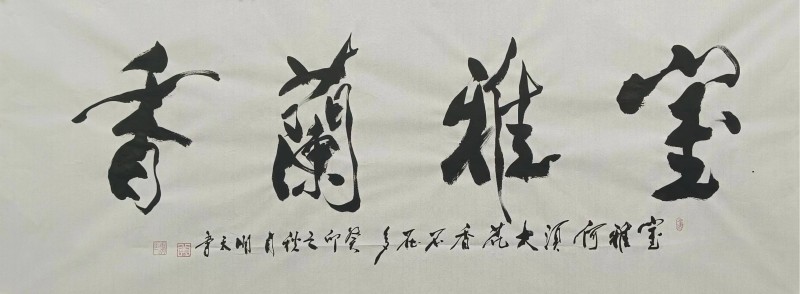 室雅蘭香
室雅何須大花香不在多癸卯之秋月